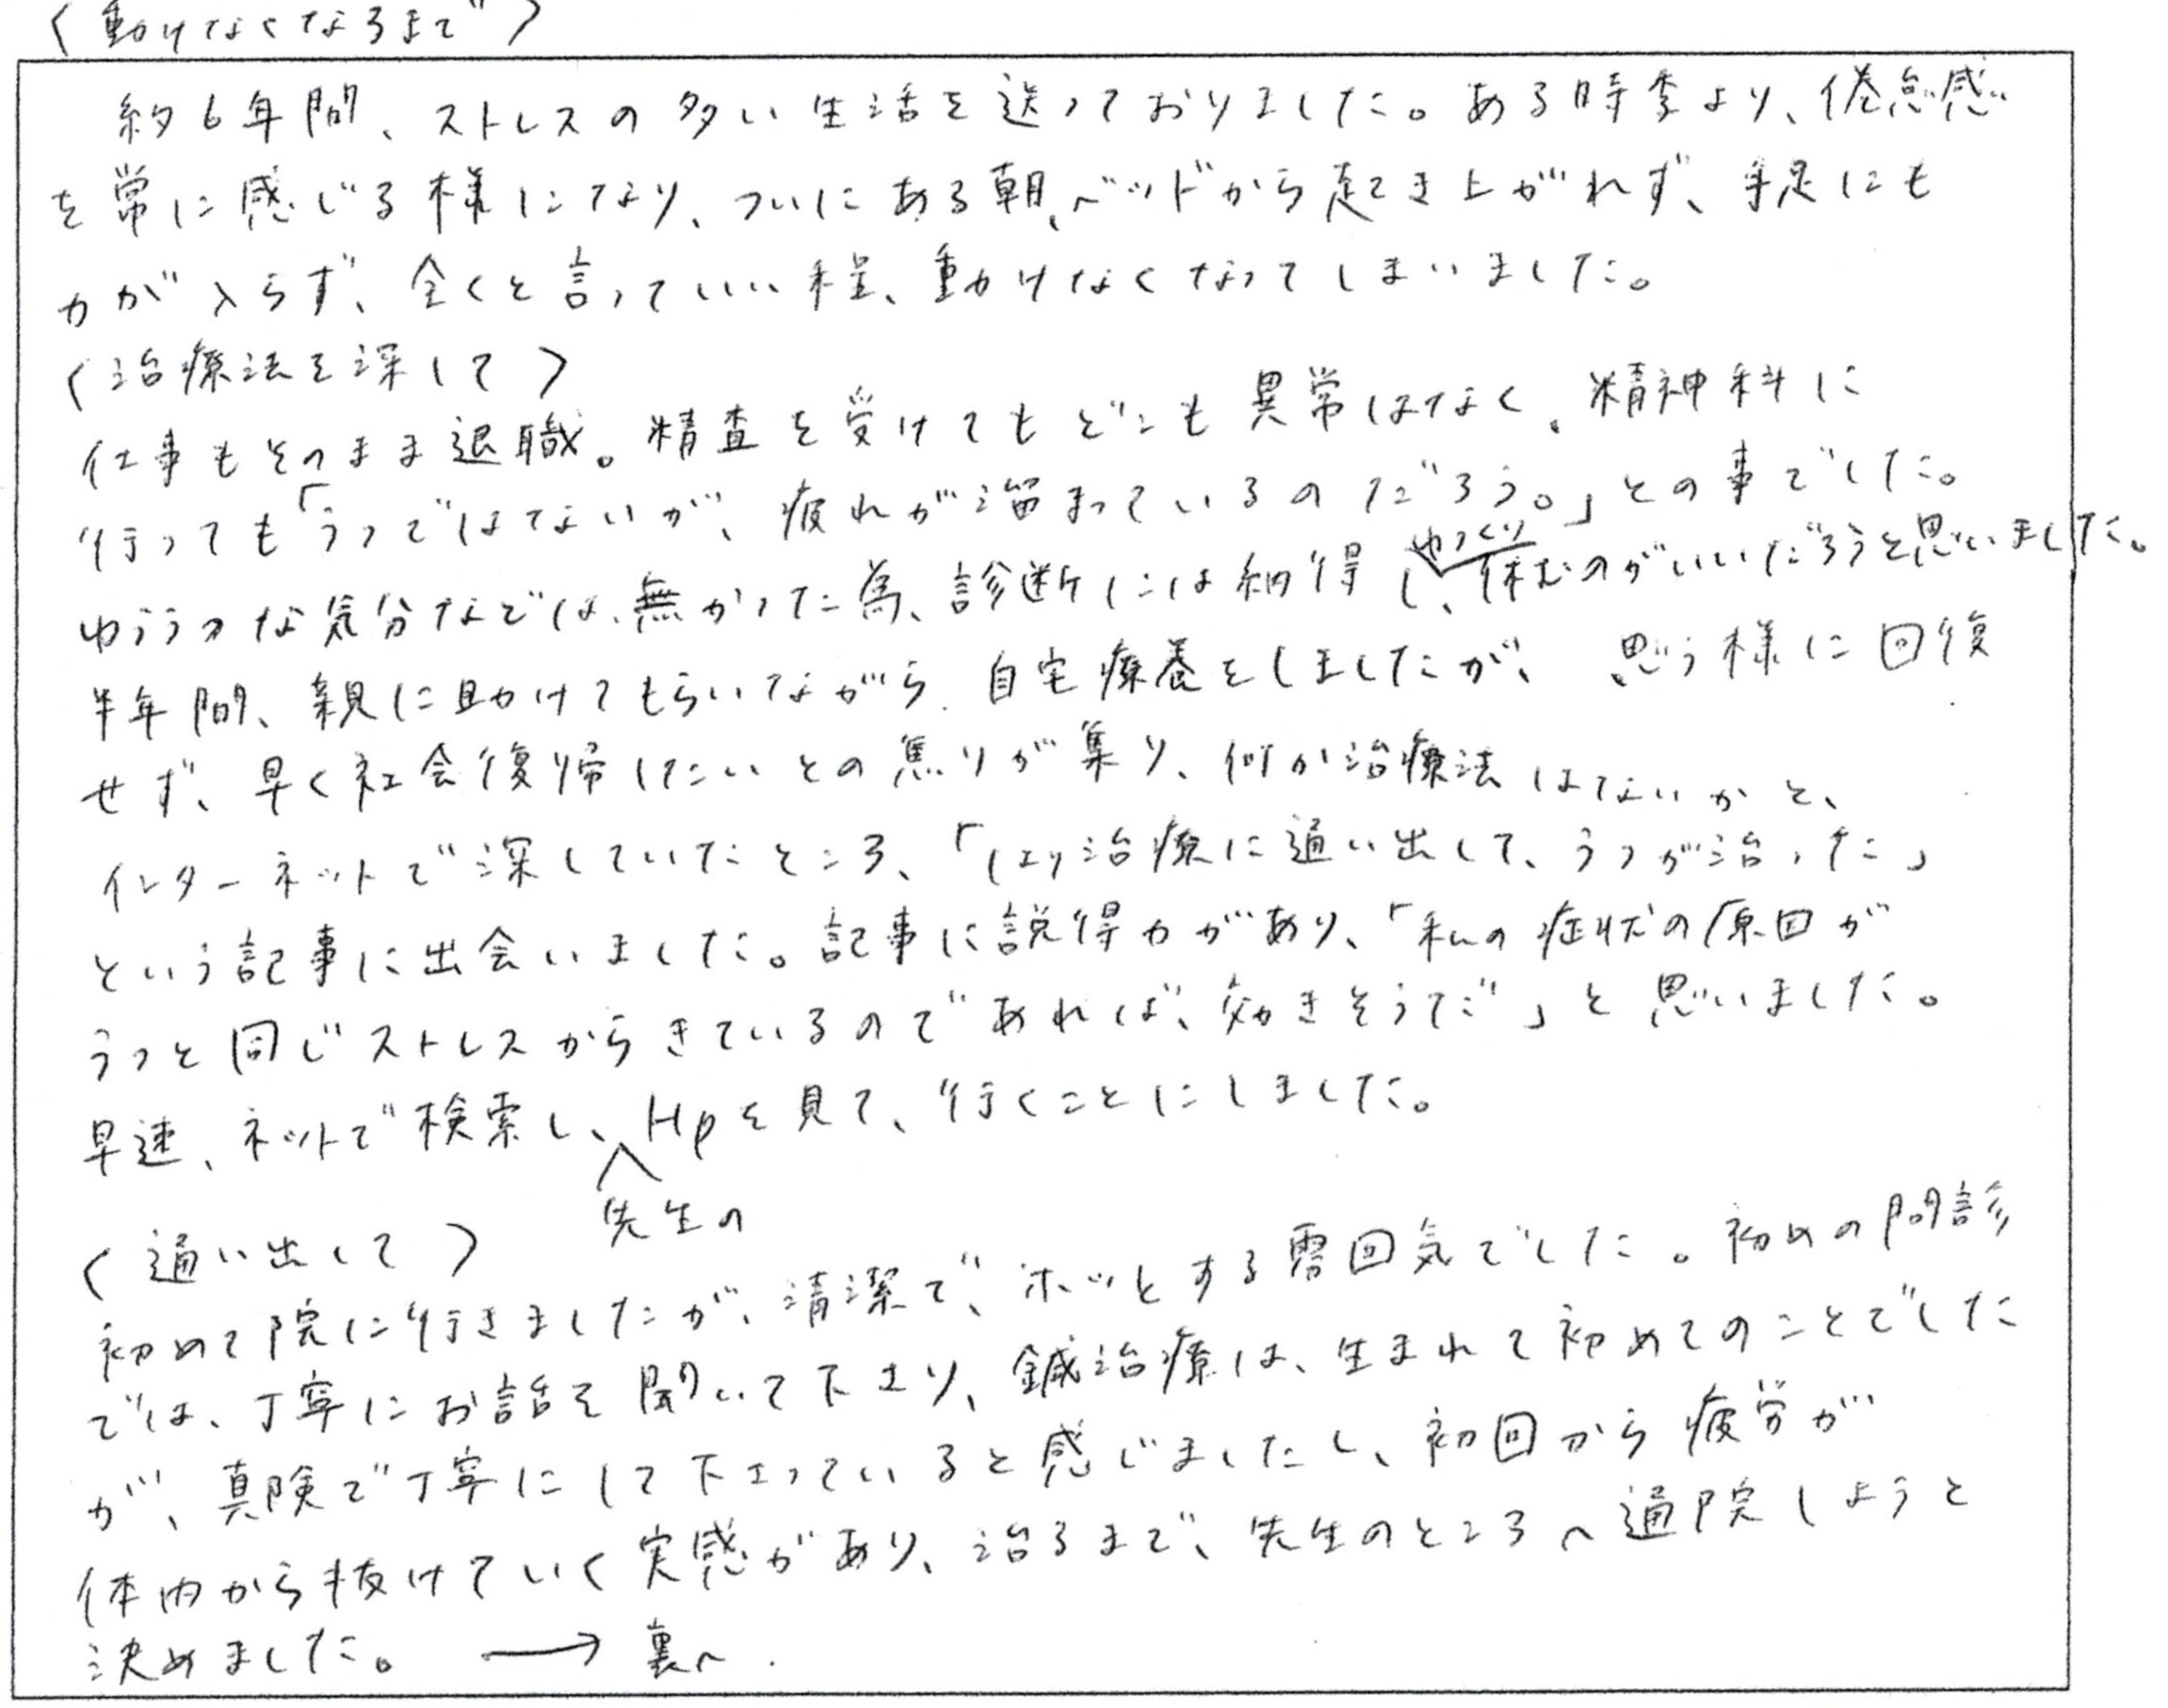 〈動けなくなるまで〉
約6年間、ストレスの多い生活を送っておりました。ある時季より、倦怠感
を常に感じる様になり、ついにある朝、ベッドから起き上がれず、手足にも
力が入らず、全くと言っていい程、動けなくなってしまいました。
〈治療法を深して〉
仕事もそのまま退職。精査を受けてもどこも異常はなく、精神科に
行っても「うつではないが、疲れが溜まっているのだろう。」との事でした。
ゆううつな気分などは、無かった為、診断には納得し、ゆっくり休むのがいいだろうと思いました。
半年間、親に助けてもらいながら、自宅療養をしましたが、思う様に回復
せず、早く社会復帰したいとの焦りが集り、何か治療法はないかと、
インターネットで深していたところ、「はり治療に通い出して、うつが治った」
という記事に出会いました。記事に説得力があり、「私の症状の原因が
うつと同じストレスからきているのであれば、効きそうだ」と思いました。
早速、ネットで検索し、先生のHpを見て、行くことにしました。
〈通い出して〉
初めて院に行きましたが、清潔で、ホッとする雰囲気でした。初めの問診
では、丁寧にお話を聞いて下さり、鍼治療は、生まれて初めてのことでした
が、真険で丁寧にして下さっていると感じましたし、初回から疲労が
体内から抜けていく実感があり、治るまで、先生のところへ通院しようと
決めました。 → 裏へ.